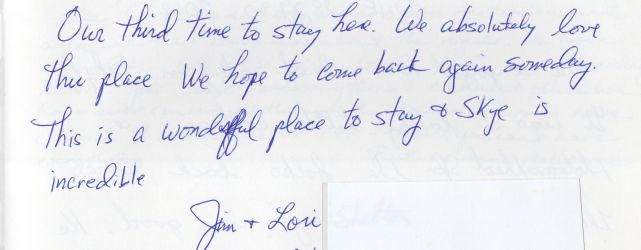 Our third time to stay here. We absolutely love
this place We hope to come back again someday.
This is a wonderful place to stay & Skye is
incredible
Jim + Lori